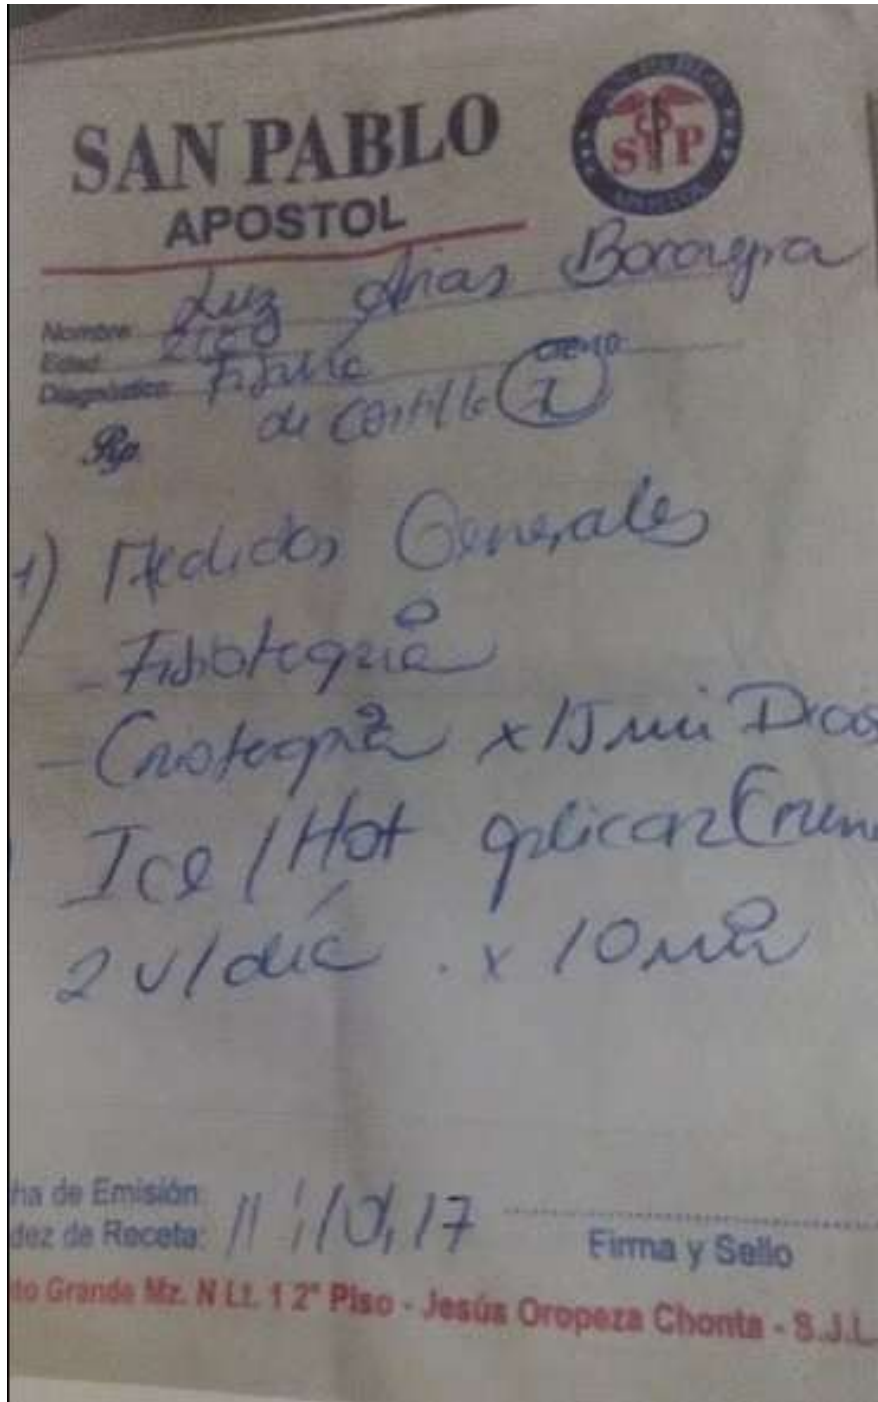 SAN PABLO
APOSTOL
SAN PABLO
SP
APOSTOL
Nombre: Luz Arias
Edad:
Diagnóstico: Fisura
de Costilla 7
Rp.
1) Medidas Generales
- Fisioterapia
- Crioterapia x 15 min
Ice / Hot aplicar
2 v/día x 10 min
ha de Emisión:
dez de Receta: 11/10/17
Firma y Sello
to Grande Mz. N Lt. 1 2° Piso - Jesús Oropeza Chonta - S.J.L